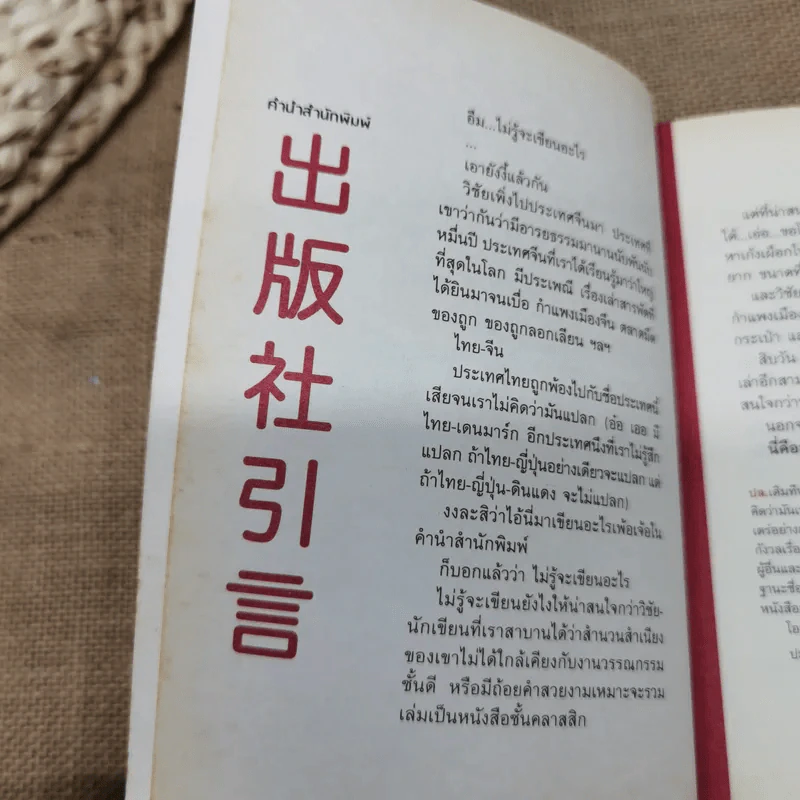 คำนำสำนักพิมพ์
出版社引言
อืม...ไม่รู้จะเขียนอะไร
...
เอายังงี้แล้วกัน
วิชัยเพิ่งไปประเทศจีนมา ประเทศที่
เขาว่ากันว่ามีอารยธรรมมานานนับพันนับ
หมื่นปี ประเทศจีนที่เราได้เรียนรู้มาว่าใหญ่
ที่สุดในโลก มีประเพณี เรื่องเล่าสารพัดที่
ได้ยินมาจนเบื่อ กำแพงเมืองจีน ตลาดมืด
ของถูก ของถูกลอกเลียน ฯลฯ
ไทย-จีน
ประเทศไทยถูกพ้องไปกับชื่อประเทศนี้
เสียจนเราไม่คิดว่ามันแปลก (อ้อ เออ มี
ไทย-เดนมาร์ก อีกประเทศนึงที่เราไม่รู้สึก
แปลก ถ้าไทย-ญี่ปุ่นอย่างเดียวจะแปลก แต่
ถ้าไทย-ญี่ปุ่น-ดินแดง จะไม่แปลก)
งงละสิว่าไอ้นี่มาเขียนอะไรเพ้อเจ้อใน
คำนำสำนักพิมพ์
ก็บอกแล้วว่า ไม่รู้จะเขียนอะไร
ไม่รู้จะเขียนยังไงให้น่าสนใจกว่าวิชัย-
นักเขียนที่เราสาบานได้ว่าสำนวนสำเนียง
ของเขาไม่ได้ใกล้เคียงกับงานวรรณกรรม
ชั้นดี หรือมีถ้อยคำสวยงามเหมาะจะรวม
เล่มเป็นหนังสือชั้นคลาสสิก
แต่ที่น่าสน
ได้...เอ่อ...ขอ
หาเก้งเผือก
ยาก ขนาดที่
และวิชัย
กำแพงเมือง
กระเป๋า แ
สิบวัน
เล่าอีกสาม
สนใจกว่า
นอกจ
นี่คือ
ปล.เดิมที
คิดว่ามัน
เตร่อย่าง
กังวลเรื่อ
ผู้อื่นและ
ฐานะชื่อ
หนังสือ
โอ
ป